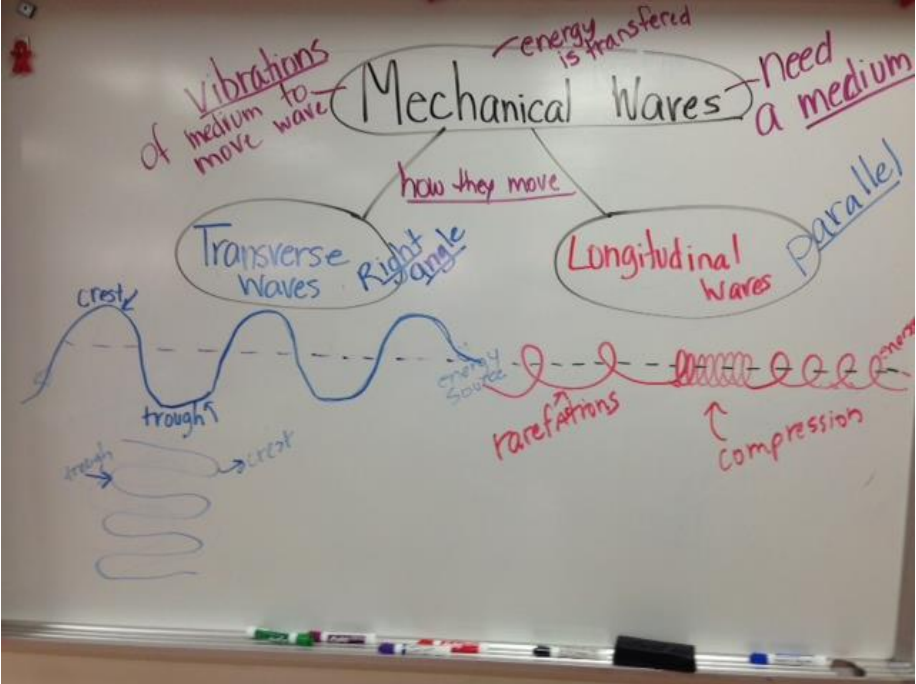 energy
is transfered
vibrations
of medium to
move wave
Mechanical Waves
need
a medium
how they move
Transverse
Waves
Right
angle
Longitudinal
Waves
parallel
crest
trough
energy
source
rarefactions
compression
energy
trough
crest